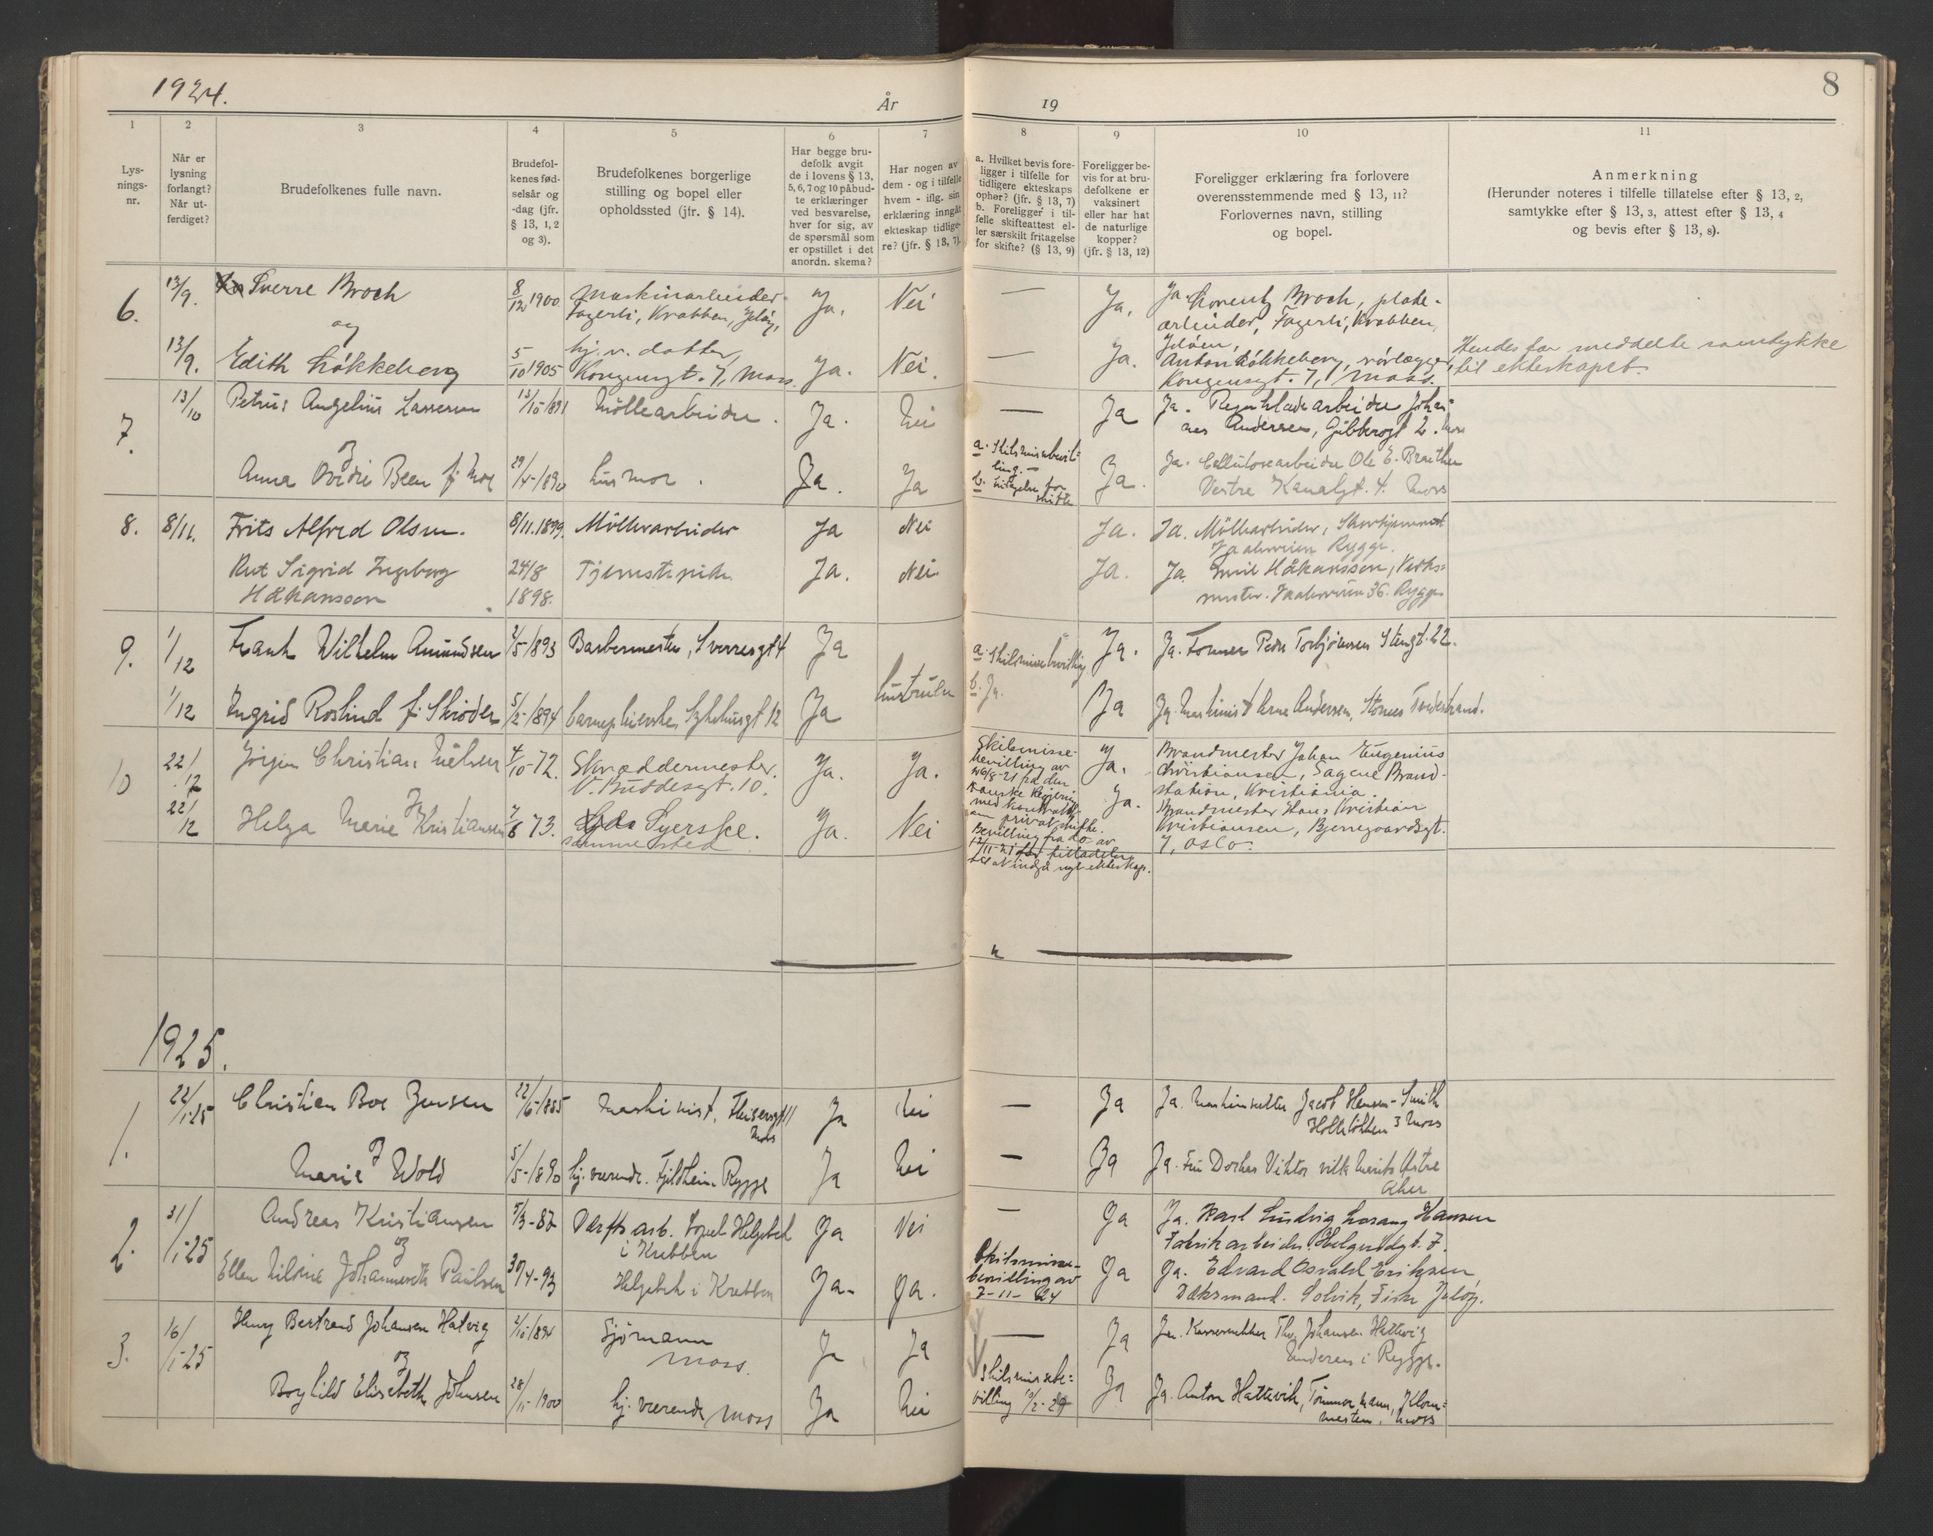 1924.
År
19
8
1
2
3
4
5
6
7
8
9
10
11
Lys-
nings-
nr.
Når er
lysning
forlangt?
Når ut-
ferdiget?
Brudefolkenes fulle navn.
Brudefol-
kenes fød-
selsår og
-dag (jfr.
§ 13, 1, 2
og 3).
Brudefolkenes borgerlige
stilling og bopel eller
opholdssted (jfr. § 14).
Har begge bru-
defolk avgit
de i lovens § 13,
5, 6, 7 og 10 påbud-
te erklæringer
ved besvarelse,
hver for sig, av
de spørsmål som
er opstillet i det
anordn. skema?
Har nogen av
dem - og i tilfelle
hvem - iflg. sin
erklæring inngått
ekteskap tidlige-
re? (jfr. § 13, 7).
a. Hvilket bevis fore-
ligger i tilfelle for
tidligere ekteskaps
ophør? (jfr. § 13, 7)
b. Foreligger i til-
felle skifteattest el-
ler særskilt fritagelse
for skifte? (§ 13, 9)
Foreligger be-
vis for at bru-
defolkene er
vaksinert
eller har hat
de naturlige
kopper?
(jfr. § 13, 12)
Foreligger erklæring fra forlovere
overensstemmende med § 13, 11?
Forlovernes navn, stilling
og bopel.
Anmerkning
(Herunder noteres i tilfelle tillatelse efter § 13, 2,
samtykke efter § 13, 3, attest efter § 13, 4
og bevis efter § 13, 8).
6.
13/9.
Sverre Broch
8/12 1900
Maskinarbeider
Fagerli, Krabben, Jeløy,
Ja.
Nei
—
Ja.
Ja. Lorentz Broch, plate-
arbeider, Fagerli, Krabben,
Jeløen,
og
13/9.
Edith Løkkeberg
5/10 1905
hj. v. datter,
Kongensgt. 7, Moss.
Ja.
Nei.
—
Ja.
Anton Løkkeberg, rørlægger,
Kongensgt. 7, Moss.
Hendes far meddelte samtykke
til ekteskapet.
7.
13/10
Petrus Angelius Lassesen
13/10-1891
Møllearbeider.
Ja.
Nei
—
Ja
Ja. arbeider Johan-
nes Andersen, 2. Moss
og
Anna Been f. Moe
29/4-1890
husmor.
Ja.
Ja
a. Skilsmissebevil-
ling.—
b. fritagelse for
skifte
Ja.
Ja. Cellulosearbeider Ole E. Braathen
Vestre Kanalgt. 4. Moss
8.
8/11.
Frits Alfred Olsen.
8/11.1899.
Møllearbeider
Ja
Nei
Ja.
Ja. Møllearbeider,
Rygge.
Rut Sigrid Ingeborg
Håkansson
24/8
1898.
Tjenestepike
Ja.
Nei
Ja.
Ja. Emil Håkansson, Verks-
mester. 36. Rygge
9.
1/12
Frank Wilhelm Amundsen
2/5-1893
Barbermester, Sverresgt 4
Ja
a. Skilsmissebevilling
Ja.
Ja. Former Peder Torbjørnsen Stengt. 22.
1/12
Ingrid Roslind f. Skrøder
5/2-1894
barnepleierske, Sykehusgt 12
Ja
hustruen
b. Ja.
Ja
Ja Maskinist Arne Andersen,
10
22/12
Jørgen Christian Nielsen
4/10-72.
Skræddermester.
V. Buddesgt. 10.
Ja.
Ja.
Skilsmisse-
bevilling av
16/8-21 fra den
danske Regjering
med kontrakt
om privat skifte.
Bevilling fra do av
17/11-21 tilladelse
til at indgå nyt ekteskap.
Ja.
Brandmester Johan Eugenius
Christiansen, Sagene Brand-
station, Kristiania.
22/12
Helga Marie Kristiansen
7/8 73.
Syerske.
sammested
Ja.
Nei
Ja.
Brandmester Hans Kristian
Kristiansen, Bjerregaardsgt.
7, Oslo.
1925.
1.
22/1-25
Christian Boe Jensen
22/6-1885
Maskinist,
Moss
Ja
Nei
—
Ja
Ja. Maskinsetter Jacob Hansen-Smith
3 Moss
og
Marie Wold
5/5-1890
hj. værende. Fjeldheim Rygge
Ja
Nei
—
Ja
Ja. Fru Dorhea Viktor
2.
31/1-25
Andreas Kristiansen
7/3-82
Verfts arb. Bopel Helgebet
i Krabben
Ja
Nei
—
Ja
Ja. Karl Ludvig Hansen
Fabrikarbeider. Helgerødgt. 7.
og
Ellen Johannesdt. Paulsen
30/4-93
Helgebet i Krabben
Ja.
Ja.
Skilsmisse-
bevilling av
7-11-24
Ja
Ja. Edvard Osvald Eriksen
Væksmand. Solvik, Jeløy.
3.
16/1-25
Henry Bertrand Johansen Hatvig
2/10-1894
Sjømann
Moss.
Ja
Ja
—
Ja
Ja. Thv. Johansen Hattvig
i Rygge.
og
Borghild Elisabeth Johnsen
28/11-1900
hj. værende Moss
Ja
Nei
Skilsmissebe-
villing 13/2-24
Ja
Ja. Anton Hattevik, Tømmermann,
Moss